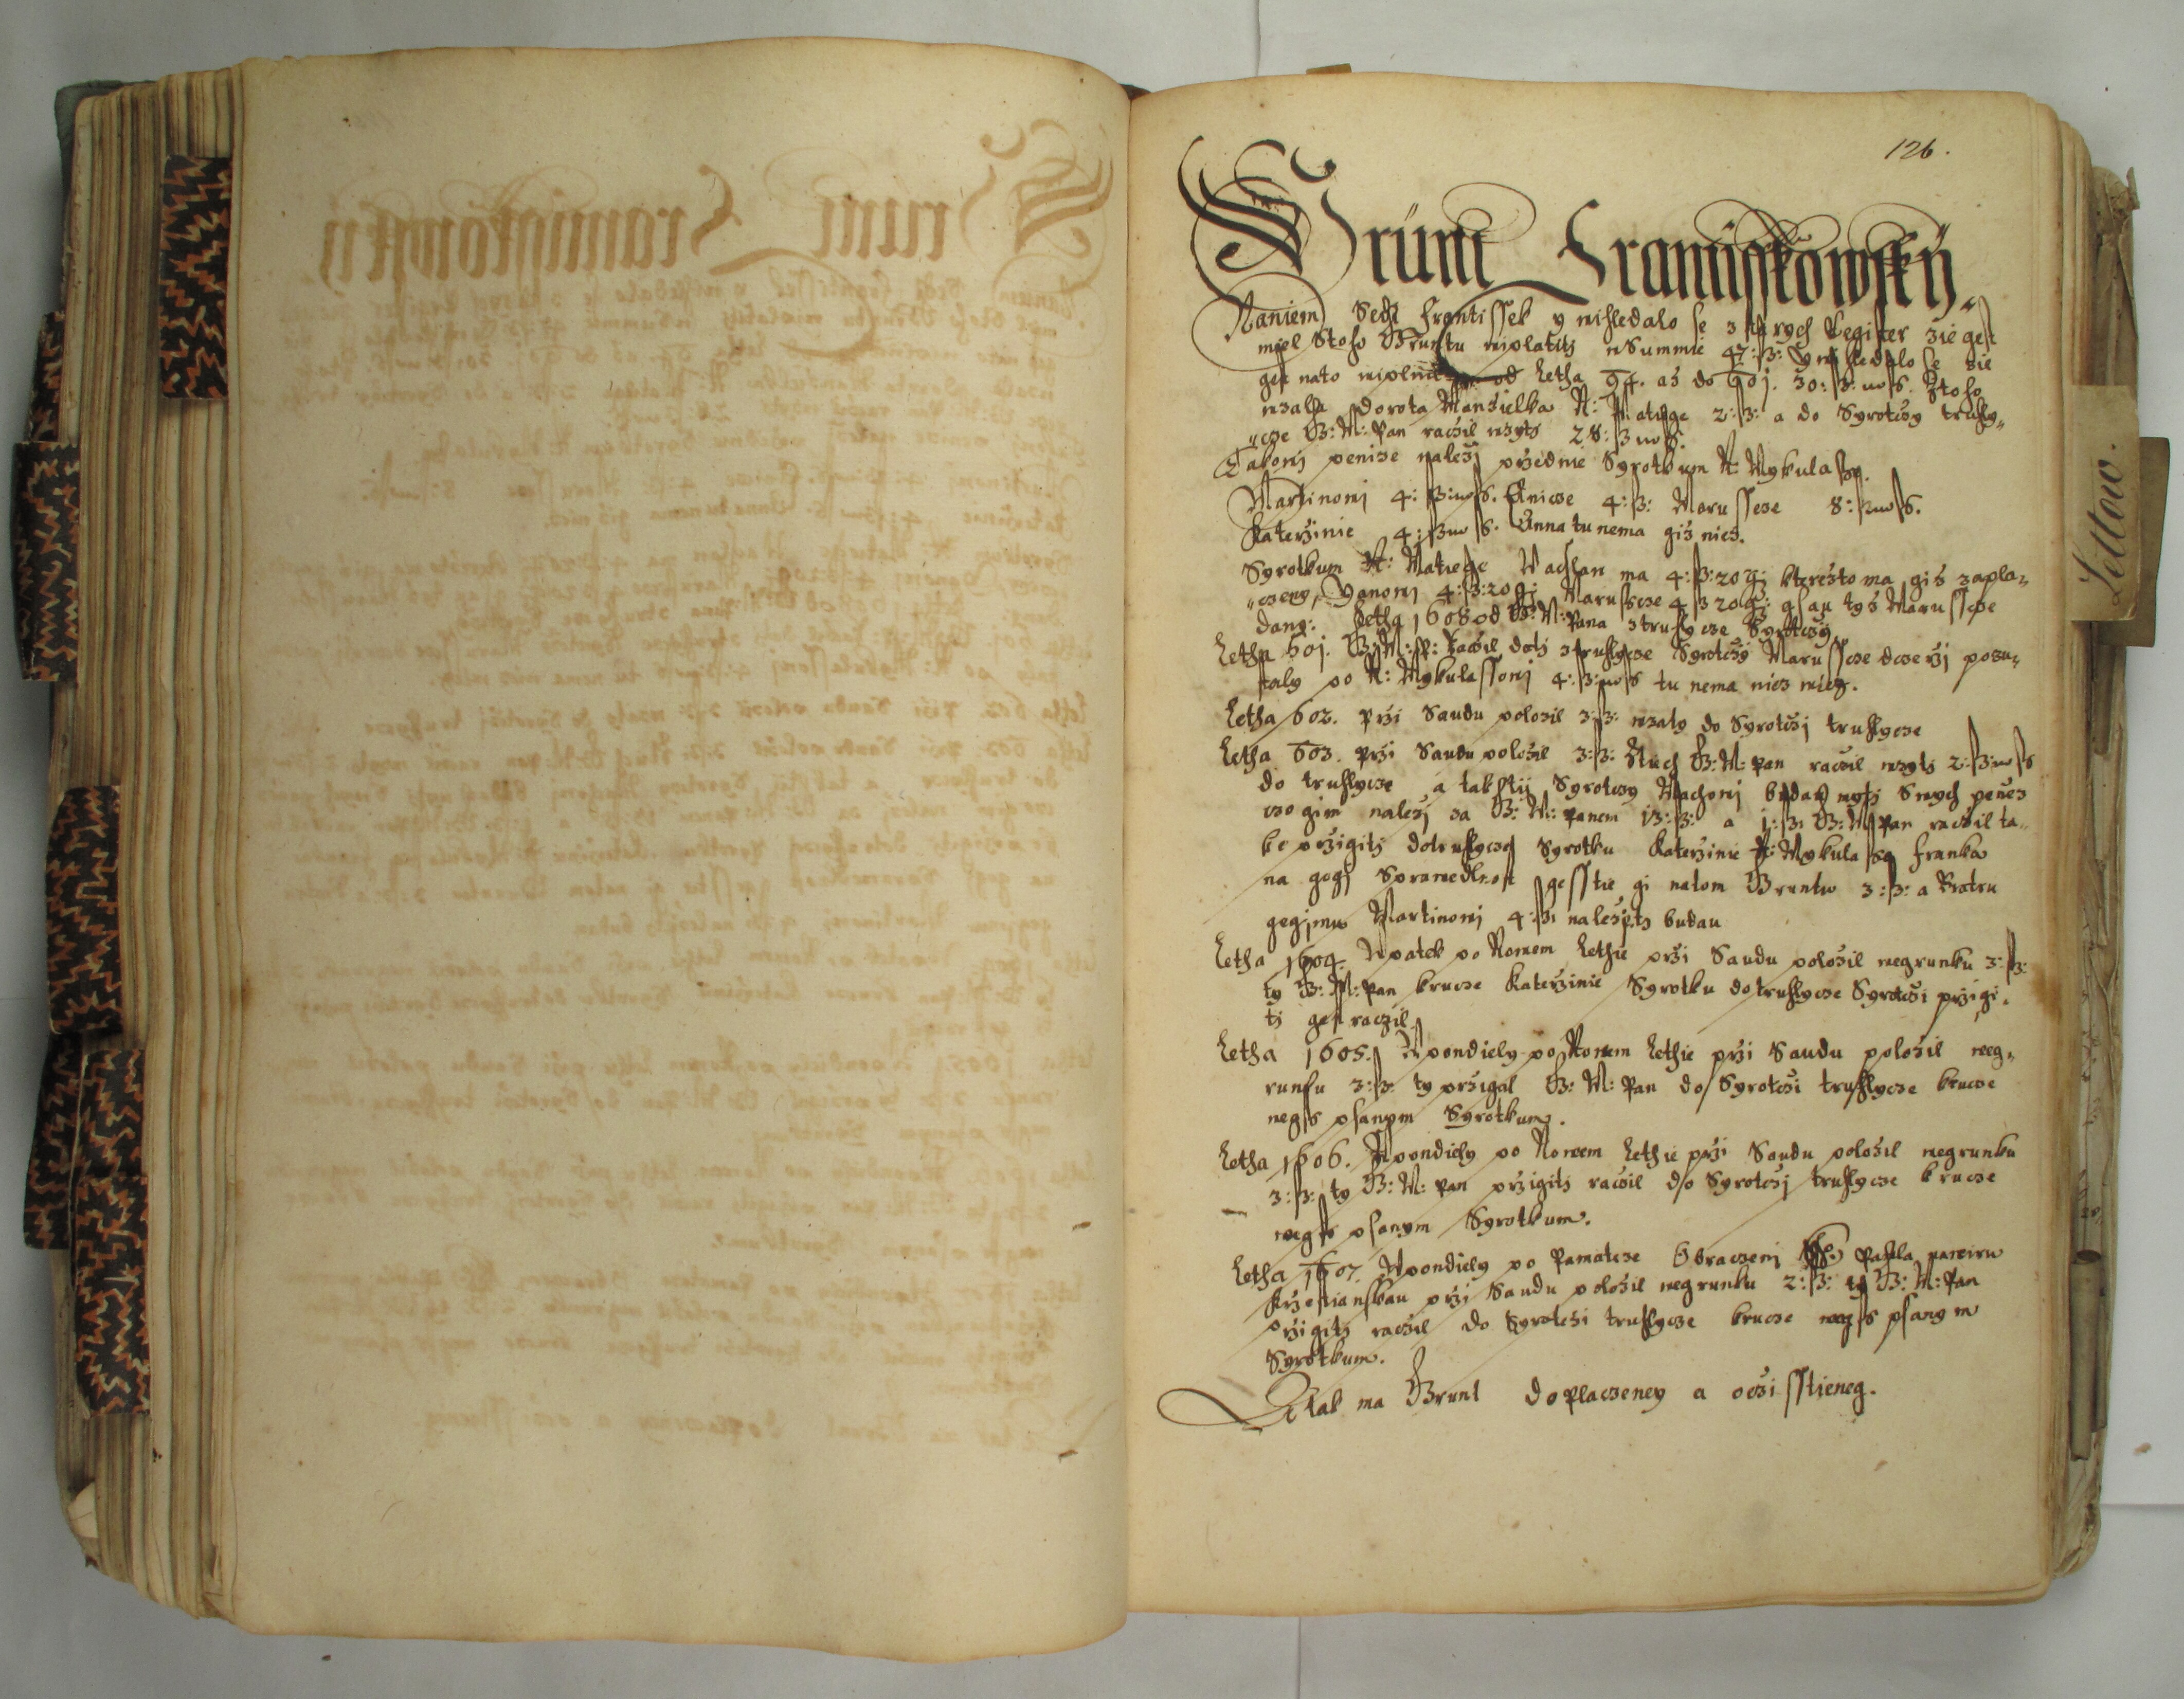 126.
Grunt Frantisskowsky
Naniem Sedi Frantissek y nihledalo se z starych Register zie gest
miel Stoho Gruntu wiplatits w Summie 47:ß: Y nihledalo se zie
gest nato wiplnil od Letha 94. až do 601. 30:ß: w S. Ztoho
wzala Dorota Manzielka N: Matiege 2:ß: a do Syrotczy truhly„
„cze G: M: Pan raczil wzyts 28:ß w S.
Takowj penize naležj przednie Syrotkum N: Mykulasse.
Martinowj 4:ß: w S. Anicze 4:ß: Marussce 8:ß w S.
Katerzinie 4:ß w S. Anna tu nema giž nicz.
Syrotkum N: Matiege Machan ma 4:ß:20 g: kterežto ma giž zapla„
„czeny, Yanowj 4:ß:20 g: Marussce 4 ß 20 g: gsau tyž Marussce
dany: Letha 1608 od G: M: Pana z truhlycze Syrotczy
Letha 601. G: M: P: Raczil dats z truhlycze Syrotczy Marussce dcerzi pozu„
staly po N: Mykulassowj 4:ß: w S tu nema nicz nicz.
Letha 602. przi Saudu položil 3:ß: wzaty do Syrotczj truhlycze
Letha 603. przi Saudu položil 3:ß: Ztiech G: M: Pan raczil wzyts 2:ß: w S
do truhlycze, a tak tii Syrotczy Machowj budau myts Swych peniez
czo gim naležj za G: M: Panem 13:ß: a 1:ß: G: M: Pan raczil ta„
ke przigits dotruhlycze Syrotku Katerzinie N: Mykulasse Franka
na gegj Sprawedlnost gesstie gi natom Gruntu 3:ß: a Bratru
gegjmu Martinowj 4:ß: naležets budau
Letha 1604. W patek po Nowem Lethie przi Saudu položil wegrunku 3:ß:
ty G: M: Pan krucze Katerzinie Syrotku do truhlycze Syrotczi przigi„
ts gest raczil.
Letha 1605. W pondiely po Nowem Lethie przi Saudu položil weg„
runku 3:ß: ty przigal G: M: Pan do Syrotczi truhlycze krucze
wegss psanym Syrotkum.
Letha 1606. W pondiely po Nowem Lethie przi Saudu položil wegrunku
3:ß: ty G: M: Pan przigits raczil do Syrotczj truhlycze krucze
wegss psanym Syrotkum.
Letha 1607. W pondiely po Pamatcze Obraczenj Pawla nawiru
Krzestianskau przi Saudu položil wegrunku 2:ß: ty G: M: Pan
przigits raczil do Syrotczi truhlycze krucze wegss psanym
Syrotkum.
A tak ma Grunt doplaczeney a oczisstieneg.
Lettow.